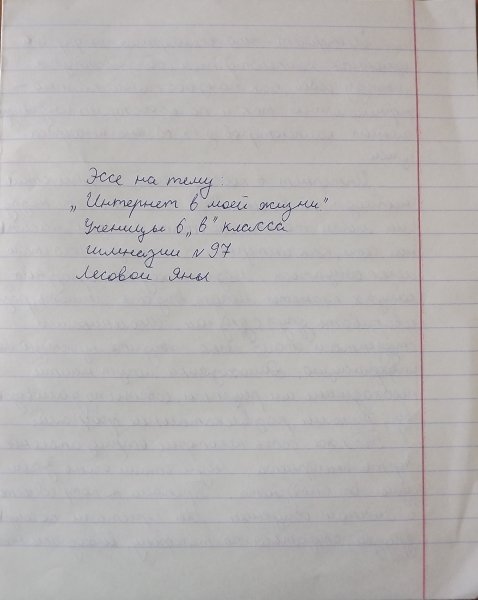 Эссе на тему:
„Интернет в моей жизни"
Ученицы 6 „в" класса
гимназии №97
Лесовой Яны